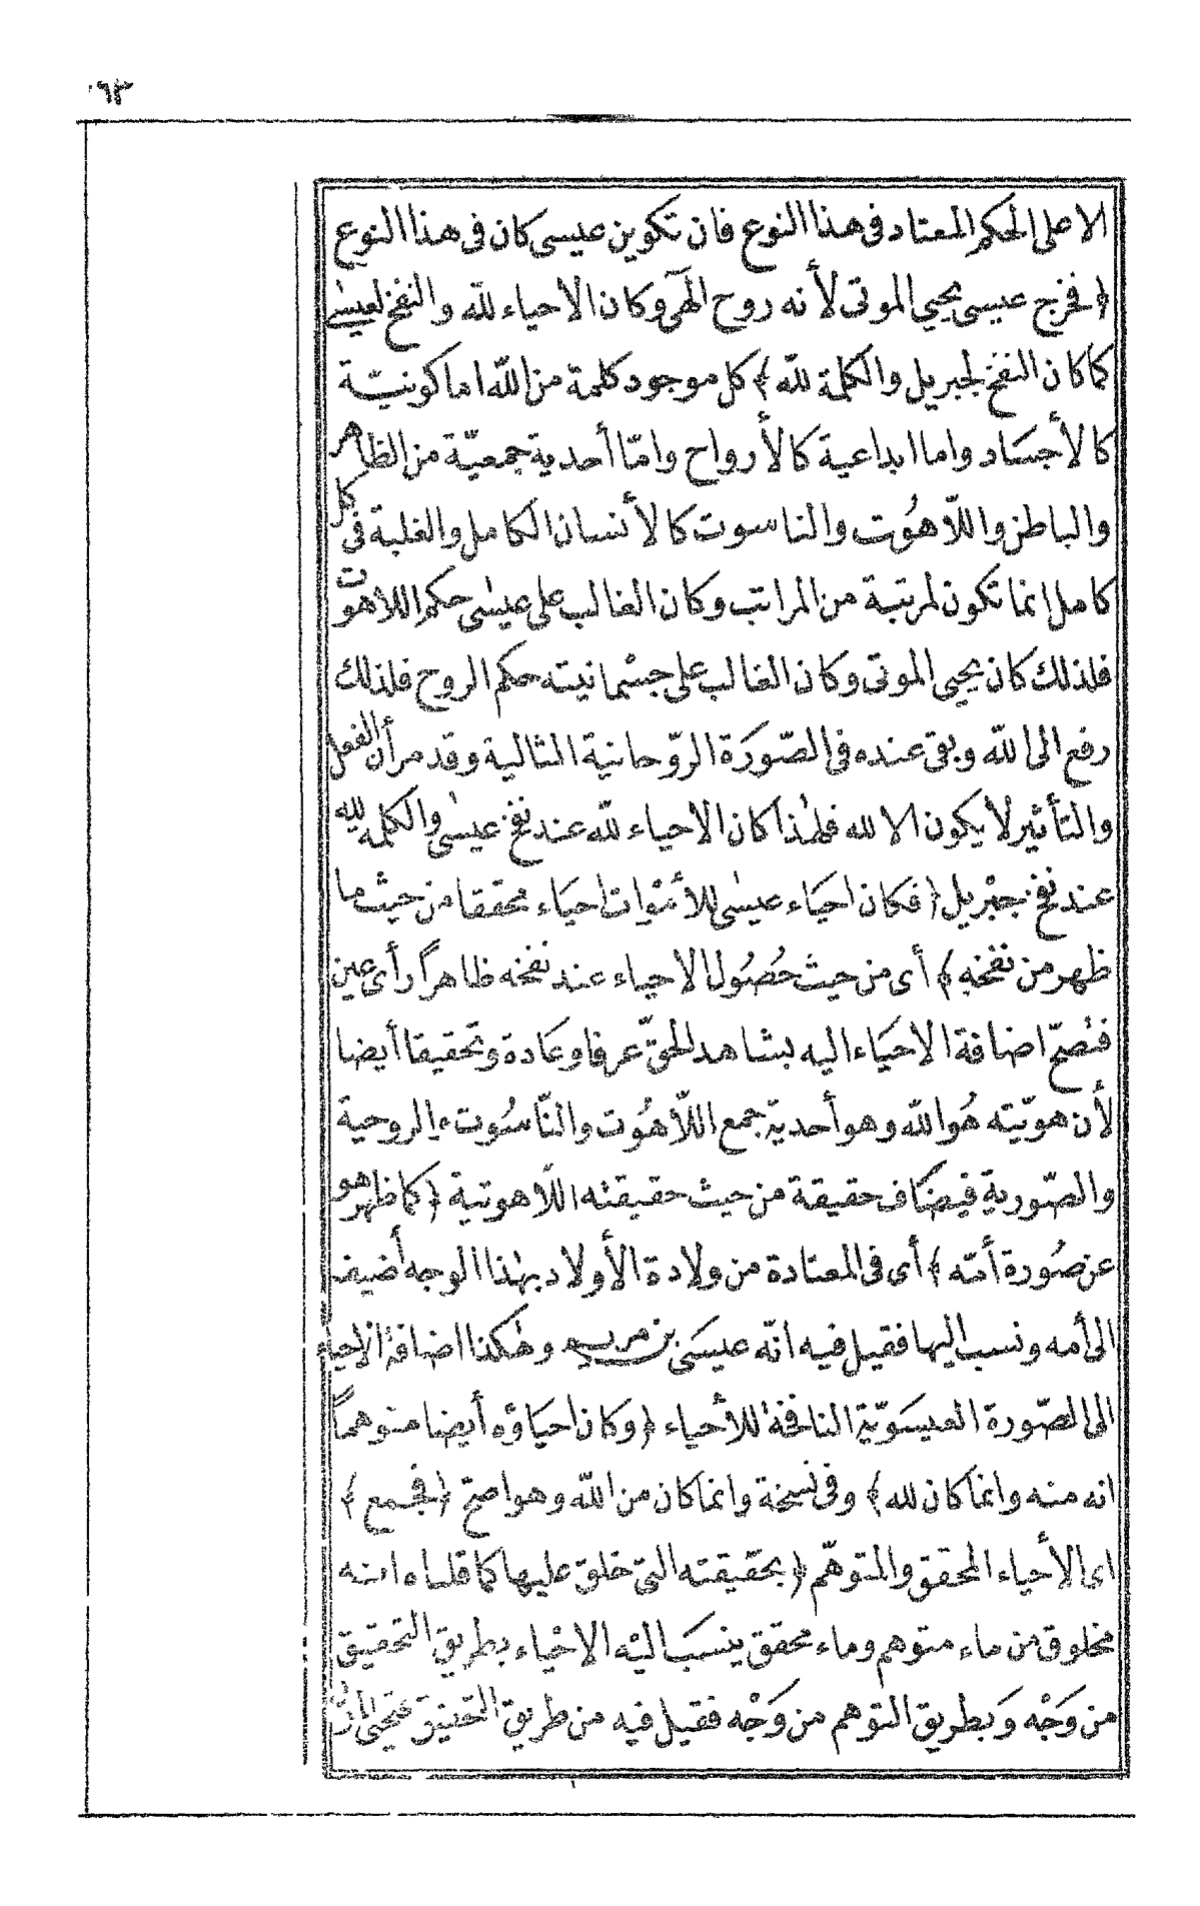 ٦٣
الا على الحكم المعتاد فى هذا النوع فان تكوين عيسى كان فى هذا النوع
﴿ فخرج عيسى يحيي الموتى لأنه روح الهى وكان الاحياء للّه والنفخ لعيسى
كما كان النفخ لجبريل والكلمة للّه ﴾ كل موجود كلمة من اللّه اما كونيّة
كالأجسَاد واما ابداعية كالأرواح وامّا أحدية جمعيّة من الظاهر
والباطن واللّاهُوت والناسوت كالأنسان الكامل والغلبة فى كل
كامل انما تكون لمرتبة من المراتب وكان الغالب على عيسى حكم اللاهوت
فلذلك كان يحيى الموتى وكان الغالب على جسْمانيته حكم الروح فلذلك
رفع الى اللّه وبقى عنده فى الصّورَة الرّوحانية المثالية وقد مر أن الفعل
والتأثير لا يكون الا لله فلهٰذا كان الاحياء للّه عند نفخ عيسٰى والكلمة لله
عند نفخ جبْريل ﴿ فكان احيَاء عيسٰى للأمْوات احيَاء محققا من حيث ما
ظهر من نفخه ﴾ أى من حيث حُصُول الاحياء عند نفخه ظاهراً رأى عين
فنصحّ اضافة الاحيَاء اليه بشاهد الحقّ عرفا وعَادة وتحقيقا أيضا
لأن هويّته هُو اللّه وهو أحدية جمع اللّاهُوت والنّاسُوت والروحية
والصّورية فيضَاف حقيقة من حيث حقيقته اللّاهوتية ﴿ كما ظهر هو
عن صُورة أمّه ﴾ أى فى المعتادة من ولادة الأولاد بهٰذا الوجه أضيف
الى أمه ونسب اليها فقيل فيه انّه عيسَى بن مريم وهٰكذا اضافة الاحياء
الى الصّورة العيسَوّية النافخة للأحياء ﴿ وكان احيَاؤه أيضا متوهماً
انه منه وانما كان لله ﴾ وفى نسخة وانما كان من اللّه وهو اصحّ ﴿ فجمع ﴾
اى الأحياء المحقق والمتوهّم ﴿ بحقّيقته التى خلق عليها كما قلناه انه
مخلوق من ماء متوهم وماء محقق ينسَب اليْه الاحْياء بطريق التحقيق
من وَجْه وَبطريق التوهم من وَجْه فقيل فيه من طريق التحقيق فتحيى الموتى